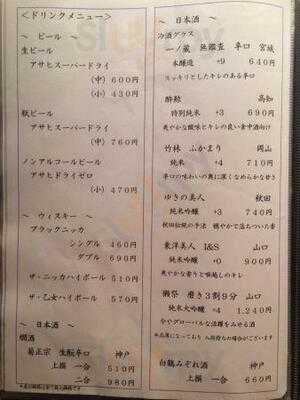 ＜ドリンクメニュー＞
～ ビール ～
生ビール
アサヒスーパードライ
(中) 600円
(小) 430円
瓶ビール
アサヒスーパードライ
(中) 760円
ノンアルコールビール
アサヒドライゼロ
(小) 470円
～ ウィスキー ～
ブラックニッカ
シングル 460円
ダブル 690円
ザ・ニッカハイボール 510円
ザ・乙女ハイボール 570円
～ 日本酒 ～
燗酒
菊正宗 生酛辛口 神戸
上撰 一合 510円
二合 980円
～ 日本酒 ～
冷酒グラス
一ノ蔵 無鑑査 辛口 宮城
本醸造 +9 640円
スッキリとしたキレのある辛口
酔鯨 高知
特別純米 +3 690円
爽やかな酸味とキレの良い食中酒向け
竹林 ふかまり 岡山
純米 +4 710円
辛口の味わいの奥に深くなめらかな甘さ
ゆきの美人 秋田
純米吟醸 +3 740円
秋田伝統の手法 穏やかで落ちついた香
東洋美人 I&S 山口
純米吟醸 +0 900円
爽やかな香りと喉越しのキレ
獺祭 磨き3割9分 山口
純米大吟醸 +4 1,240円
ややグローバルな活躍をみせる酒
白鶴みぞれ酒 神戸
上撰 一合 660円